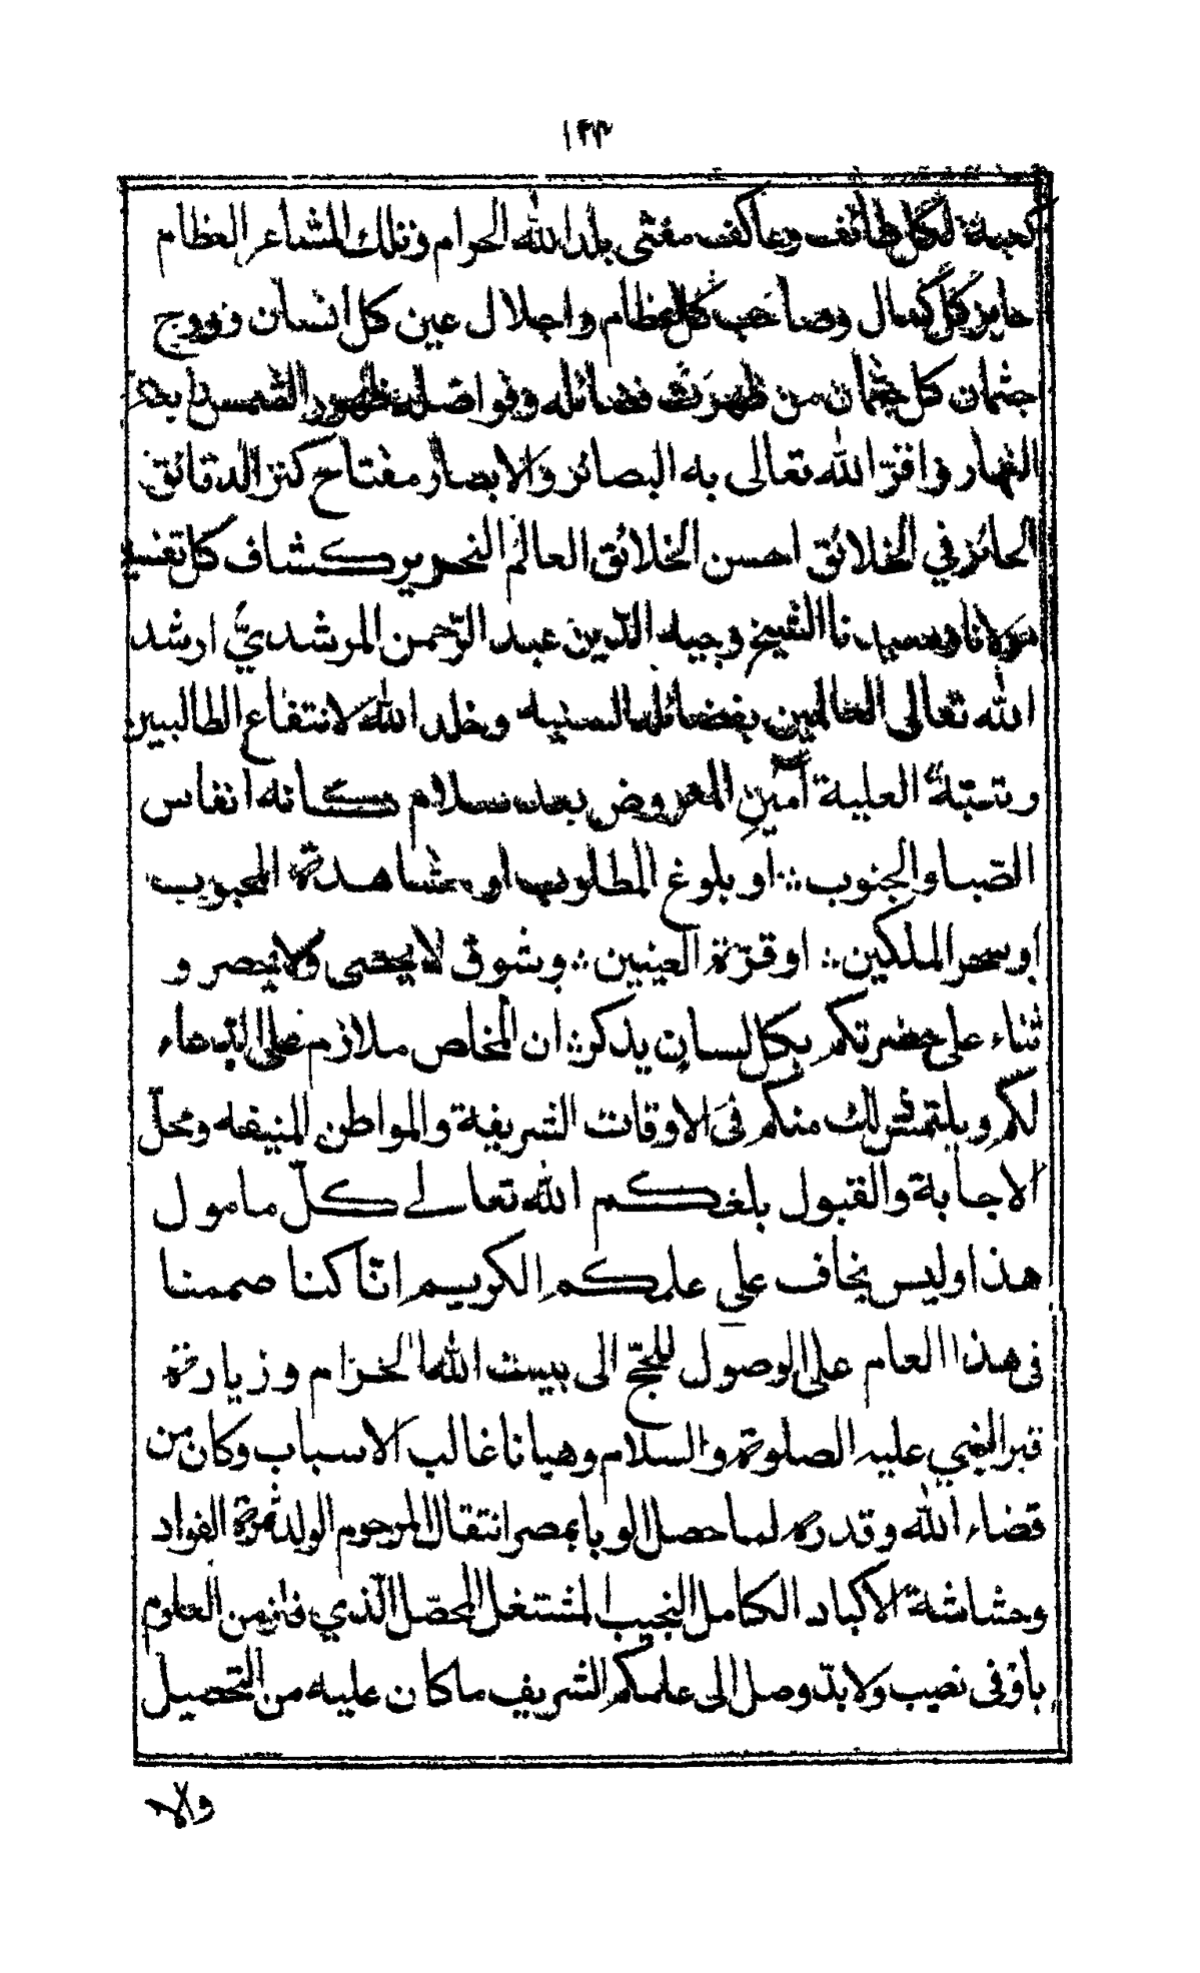 ١٢٣
كعبة لكل طائف وعاكف مفتى بلد الله الحرام وتلك المشاعر العظام
حايز كل كمال وصاحب كل نظام واجلال عين كل انسان وروح
جثمان كل جثمان من ظهرت فضائله وفواضله ظهور الشمس
النهار واقرّ الله تعالى به البصائر والابصار مفتاح كنز الدقائق
الحائز في الخلائق احسن الخلائق العالم النحرير كشاف كل تفسير
مولانا وسيدنا الشيخ وجيه الدّين عبد الرّحمن المرشديّ ارشد
الله تعالى العالمين بفضائله السنيه وخلد الله لانتفاع الطالبين
رتبتهُ العلية آمين المعروض بعد سلام كانه انفاس
الصّبا والجنوب ∴ او بلوغ المطلوب او مشاهدة المحبوب
او سحر الملكين ∴ او قرّة العينين ∴ وشوق لا يحصى ولا يحصر و
ثناء على حضرتكم بكل لسان يذكر ∴ ان المخلص ملازم على الدعاء
لكم ويلتمس ذلك منكم في الاوقات الشريفة والمواطن المنيفه ومحلّ
الاجابة والقبول بلغكم الله تعالى كلّ مامول
هذا وليس بخاف على علمكم الكريم انّا كنا صممنا
فى هذا العام على الوصول للحجّ الى بيت الله الحرام وزيارة
قبر النبي عليه الصلوة والسلام وهيانا غالب الاسباب وكان من
قضاء الله وقدره لما حصل الوبا بمصر انتقال المرحوم الولد ثمرة الفواد
وحشاشة الاكباد الكامل النجيب المشتغل المحصّل الّذي فاز من العلوم
باوفى نصيب ولابدّ وصل الى علمكم الشريف ما كان عليه من التحصيل
والا